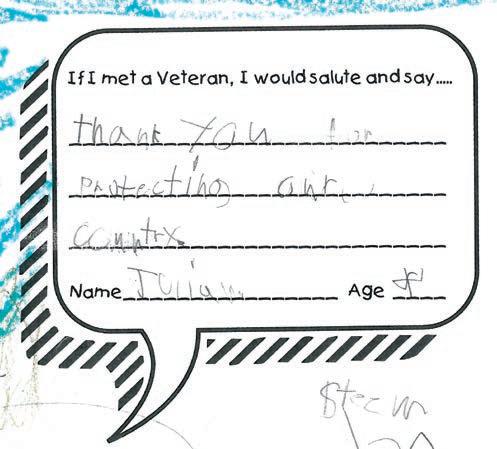 If I met a Veteran, I would salute and say.....
thank you for
protecting our
country.
Name Julian Age